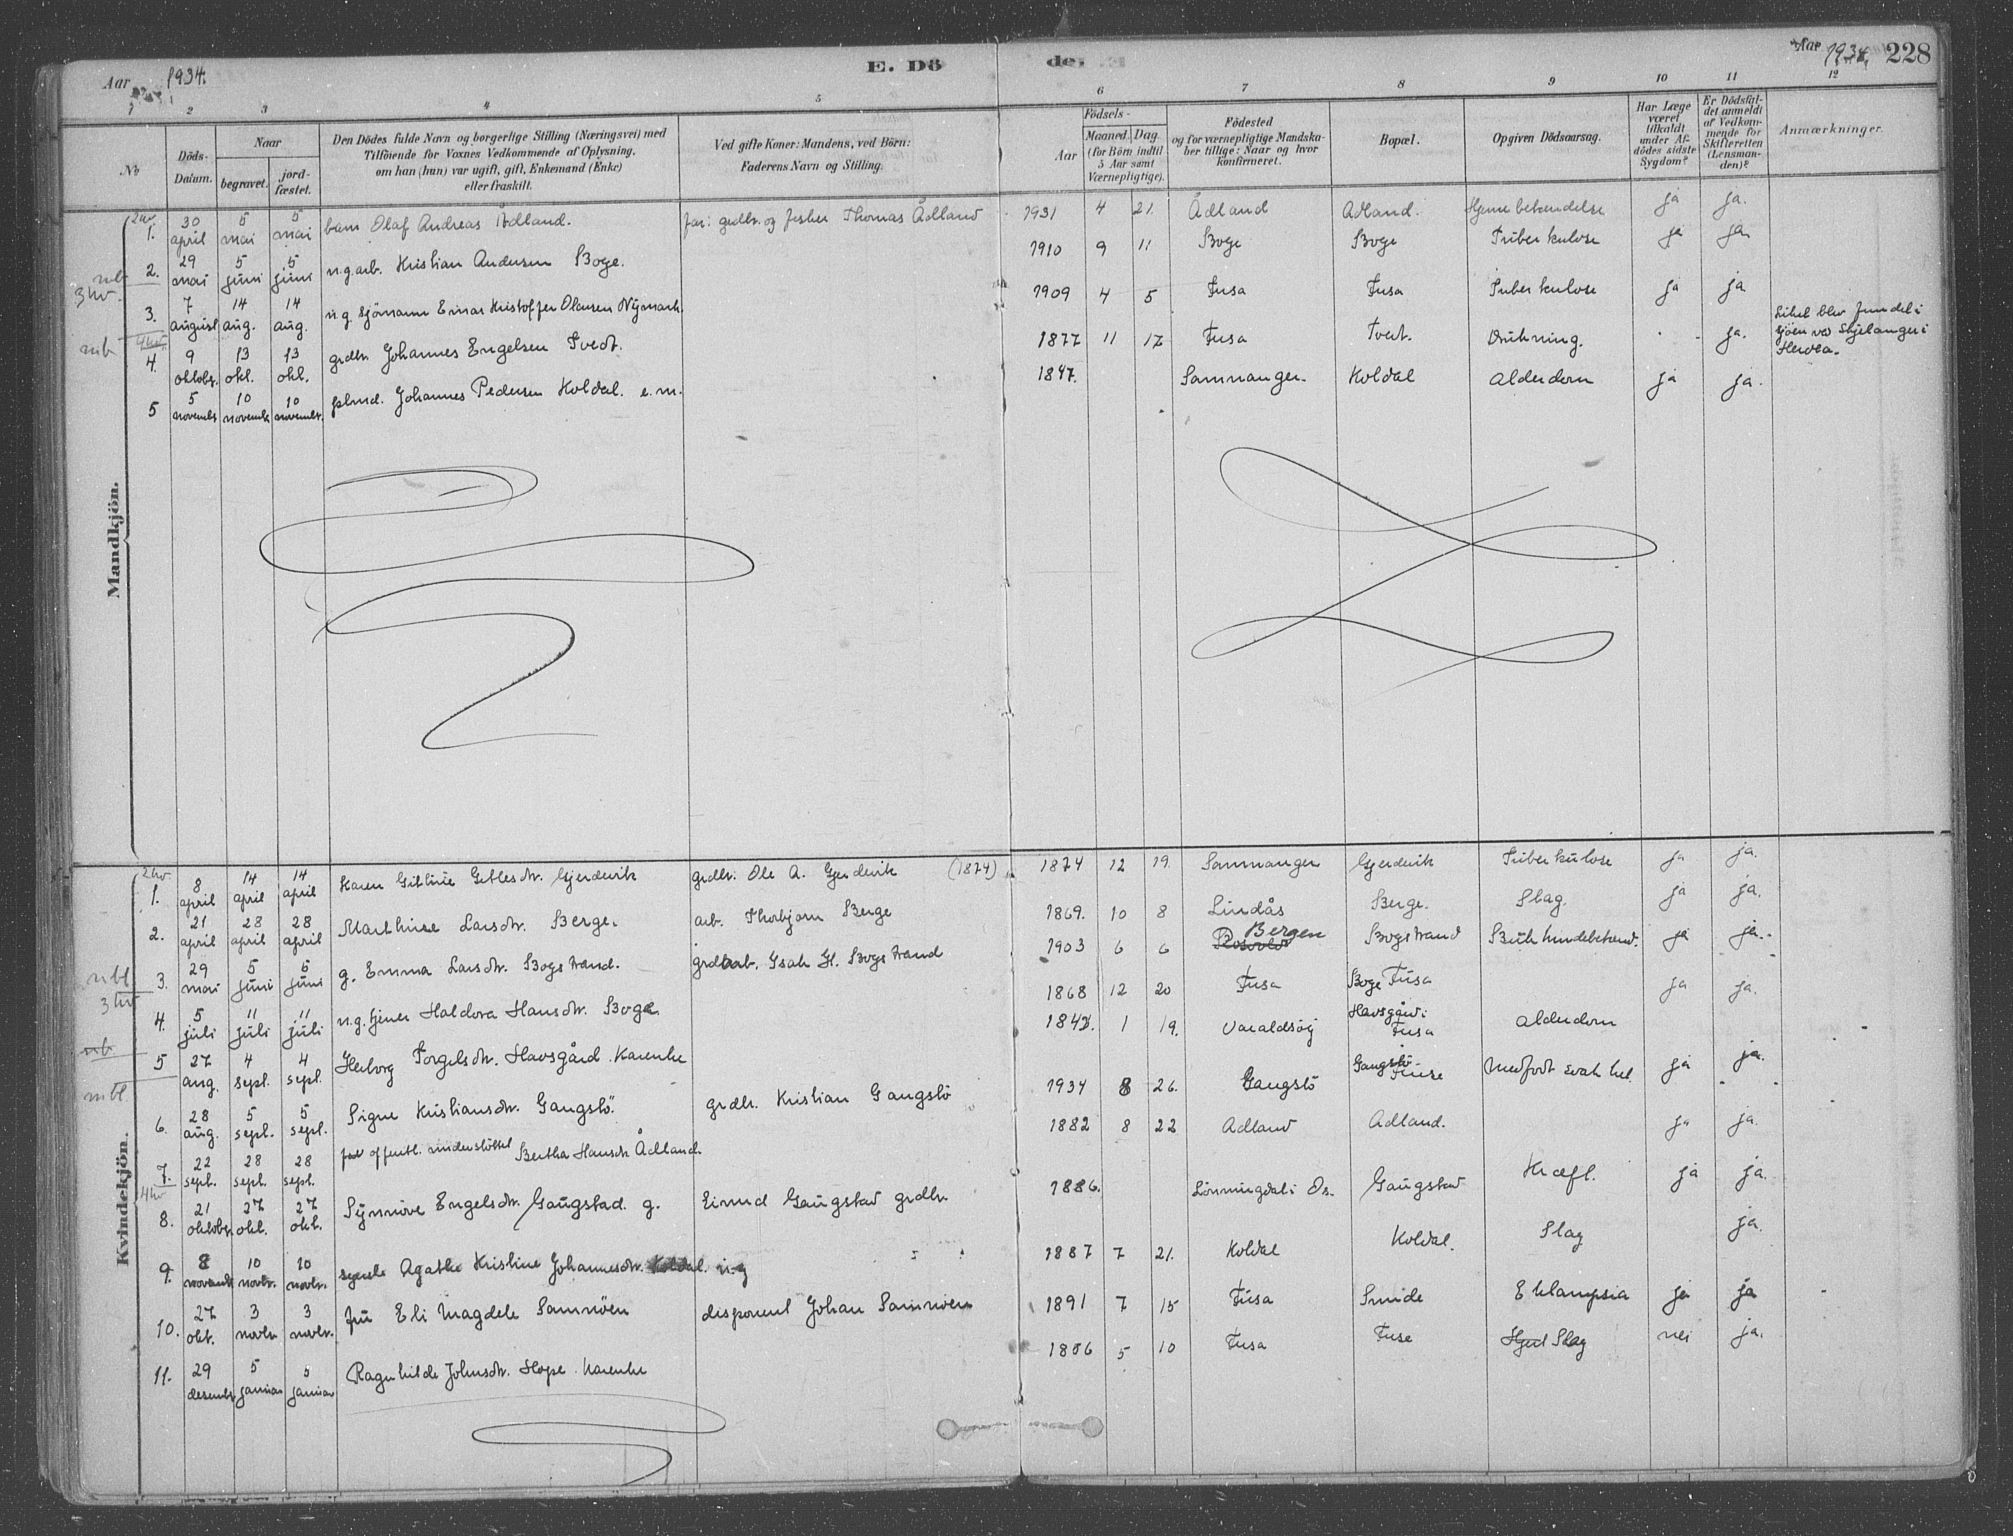 Aar 1934.
E. Döde.
Aar 1934. 228
1 2 3 4 5 6 7 8 9 10 11 12
No
Döds-Datum.
Naar begravet. jordfæstet.
Den Dödes fulde Navn og borgerlige Stilling (Næringsvei) med Tilföiende for Voxnes Vedkommende af Oplysning, om han (hun) var ugift, gift, Enkemand (Enke) eller fraskilt.
Ved gifte Koner: Mandens, ved Börn: Faderens Navn og Stilling.
Födsels- Aar Maaned. Dag. (for Börn indtil 5 Aar samt Værnepligtige).
Födested og for værnepligtige Mandskaber tillige: Naar og hvor konfirmeret.
Bopæl.
Opgiven Dödsaarsag.
Har Læge været tilkaldt under Afdödes sidste Sygdom?
Er Dödsfaldet anmeldt af Vedkommende for Skifteretten (Lensmanden)?
Anmærkninger.
Mandkjön.
2hv. 1. 30 april 5 mai 5 mai barn Olaf Andreas Ådland. far: grdbr. og fisker Thomas Ådland 1931 4 21 Ådland Ådland. Hjernebetendelse ja ja.
2. 29 mai 5 juni 5 juni u.g. arb. Kristian Andersen Boge. 1910 9 11 Boge Boge Tuberkulose ja ja
3 hv.
3. 7 august 14 aug. 14 aug. u.g. sjömann Einar Kristoffer Olausen Nymark. 1909 4 5 Fusa Fusa Tuberkulose ja ja
4hv.
4. 9 oktobr. 13 okt. 13 okt. grdbr. Johannes Engelsen Tvedt. 1877 11 17 Fusa Tvedt. Drukning. ja. Liket blev fundet i sjöen ved Skjelanger i Herdla.
5 5 novembr. 10 novembr. 10 novembr. Johannes Pedersen Koldal. e.m. 1847. Samnanger. Koldal alderdom ja ja.
Kvindekjön.
2hv
1. 8 april 14 april 14 april Karen Gitlesdr. Gjerdevik grdbr. Ole A. Gjerdevik (1874) 1874 12 19. Samnanger Gjerdevik Tuberkulose ja ja.
2. 21 april 28 april 28 april Marthine Larsdtr. Berge. arb. Thorbjørn Berge 1869. 10 8 Lindås Berge. Slag. ja ja.
3. 29 mai 5 juni 5 juni g. Emma Larsdtr. Bogstrand. Isak H. Bogstrand 1903 6 6 Bergen Bogstrand Bukhindebetend. ja ja.
3 hv
4. 5 juli 11 juli 11 juli u.g. tjener Haldora Hansdtr. Boge. 1868 12 20 Fusa Boge Fusa ja ja.
5 27 aug. 4 sept. 4 sept. Herborg Torgelsdtr. Havsgård. Kårenke 1843. 1 19. Varaldsöy Havsgård i Fusa alderdom
6. 28 aug. 5 sept. 5 sept. Signe Kristiansdtr. Gangstö. grdbr. Kristian Gangstö 1934 8 26. Gangstö Gangstö Fuse Medfödt svakhet ja ja.
7. 22 sept. 28 sept. 28 sept. offentl. understöttet Bertha Hansdtr Ådland. 1882 8 22 Ådland Ådland. ja ja.
4hv
8. 21 oktobr. 27 okt. 27 okt. Synnöve Engelsdtr. Gaugstad. g. Eimd Gaugstad grdbr. 1886. Lönningdal i Os. Gaugstad Kræft. ja ja.
9. 8 novembr 10 novbr. 10 novbr. syerske Agathe Kristine Johannesdtr. Koldal. u.g 1887 7 21. Koldal Koldal. Slag ja.
10. 27 okt. 3 novbr. 3 novbr. fru Eli Magdele Samnöen disponent Johan Samnöen 1891 7 15 Fusa Smide Eklampsia ja ja
11. 29 desembr 5 januar 5 januar Ragnhilde Johnsdtr. Hope. Kårenke 1856 5 10 Fusa Fuse Slag nei ja.